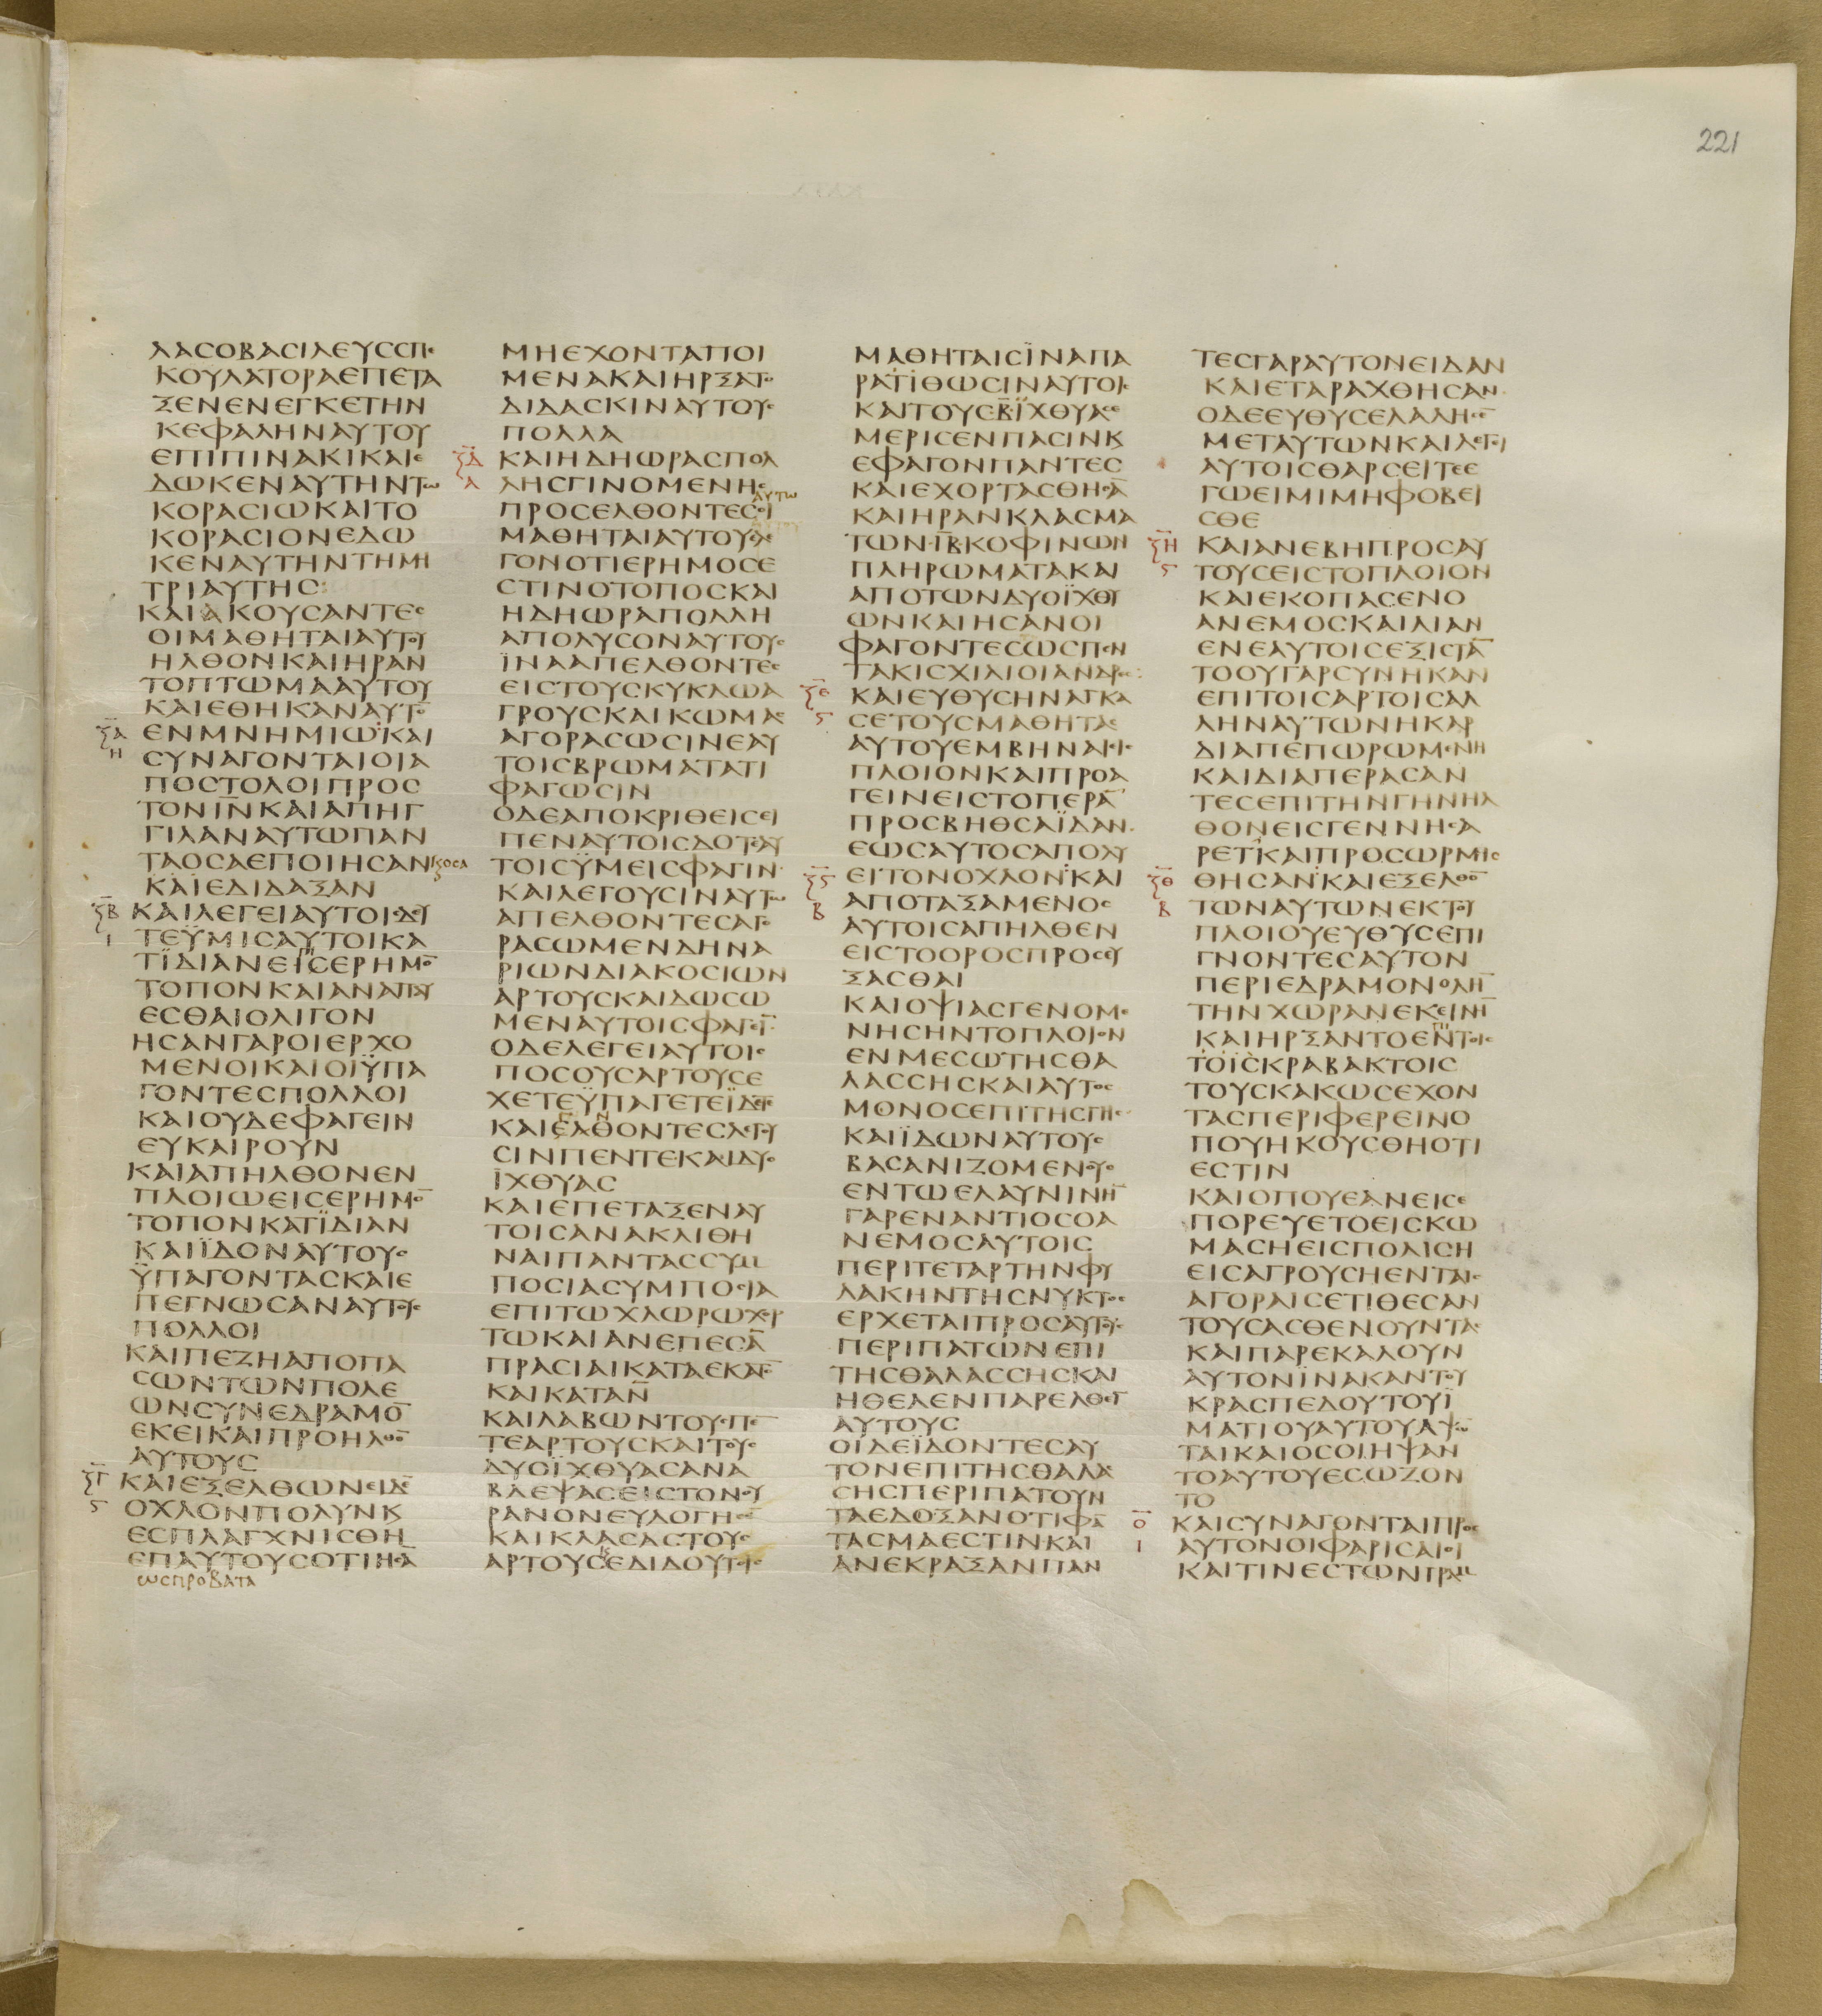 221
ΛΑСΟΒΑСΙΛΕΥССΠΕ
ΚΟΥΛΑΤΟΡΑΕΠΕΤΑ
ΞΕΝΕΝΕΓΚΕΤΗΝ
ΚΕΦΑΛΗΝΑΥΤΟΥ
ΕΠΙΠΙΝΑΚΙΚΑΙΕ
ΔΩΚΕΝΑΥΤΗΝΤΩ
ΚΟΡΑСΙΩΚΑΙΤΟ
ΚΟΡΑСΙΟΝΕΔΩ
ΚΕΝΑΥΤΗΝΤΗΜΗ
ΤΡΙΑΥΤΗС:
ΚΑΙΑΚΟΥСΑΝΤΕС
ΟΙΜΑΘΗΤΑΙΑΥΤΟΥ
ΗΛΘΟΝΚΑΙΗΡΑΝ
ΤΟΠΤΩΜΑΑΥΤΟΥ
ΚΑΙΕΘΗΚΑΝΑΥΤΟ̅
ΞΑ ΕΝΜΝΗΜΙΩ·ΚΑΙ
Η СΥΝΑΓΟΝΤΑΙΟΙΑ
ΠΟСΤΟΛΟΙΠΡΟС
ΤΟΝΙ̅Ν̅ΚΑΙΑΠΗΓ
ΓΙΛΑΝΑΥΤΩΠΑΝ
ΤΑΟСΑΕΠΟΙΗСΑΝΚΟСΑ
ΚΑΙΕΔΙΔΑΞΑΝ
ΞΒ ΚΑΙΛΕΓΕΙΑΥΤΟΙСΔΕΥ
Ι ΤΕΫΜΙСΑΥΤΟΙΚΑ
ΤΪΔΙΑΝΕΙСΕΡΗΜΟ̅
ΤΟΠΟΝΚΑΙΑΝΑΠΑΥ
ΕСΘΑΙΟΛΙΓΟΝ
ΗСΑΝΓΑΡΟΙΕΡΧΟ
ΜΕΝΟΙΚΑΙΟΙΫΠΑ
ΓΟΝΤΕСΠΟΛΛΟΙ
ΚΑΙΟΥΔΕΦΑΓΕΙΝ
ΕΥΚΑΙΡΟΥΝ
ΚΑΙΑΠΗΛΘΟΝΕΝ
ΠΛΟΙΩΕΙСΕΡΗΜΟ̅
ΤΟΠΟΝΚΑΤΪΔΙΑΝ
ΚΑΙΪΔΟΝΑΥΤΟΥС
ΫΠΑΓΟΝΤΑСΚΑΙΕ
ΠΕΓΝΩСΑΝΑΥΤΟΥС
ΠΟΛΛΟΙ
ΚΑΙΠΕΖΗΑΠΟΠΑ
СΩΝΤΩΝΠΟΛΕ
ΩΝСΥΝΕΔΡΑΜΟ̅
ΕΚΕΙΚΑΙΠΡΟΗΛΘΟ̅
ΑΥΤΟΥС
ΞΓ ΚΑΙΕΞΕΛΘΩΝΕΙΔΕ̅
Ϛ ΟΧΛΟΝΠΟΛΥΝΚ
ΕСΠΛΑΓΧΝΙСΘΗ
ΕΠΑΥΤΟΥСΟΤΙΗСΑ̅
ΩСΠΡΟΒΑΤΑ
ΜΗΕΧΟΝΤΑΠΟΙ
ΜΕΝΑΚΑΙΗΡΞΑΤΟ
ΔΙΔΑСΚΙΝΑΥΤΟΥС
ΠΟΛΛΑ
ΞΔ ΚΑΙΗΔΗΩΡΑСΠΟΛ
Α ΛΗСΓΙΝΟΜΕΝΗС
ΑΥΤΩ
ΠΡΟСΕΛΘΟΝΤΕСΟΙ
ΜΑΘΗΤΑΙΑΥΤΟΥΕΛΕ
ΓΟΝΟΤΙΕΡΗΜΟСΕ
СΤΙΝΟΤΟΠΟСΚΑΙ
ΗΔΗΩΡΑΠΟΛΛΗ
ΑΠΟΛΥСΟΝΑΥΤΟΥС
ΪΝΑΑΠΕΛΘΟΝΤΕС
ΕΙСΤΟΥСΚΥΚΛΩΑ
ΓΡΟΥСΚΑΙΚΩΜΑС
ΑΓΟΡΑСΩСΙΝΕΑΥ
ΤΟΙСΒΡΩΜΑΤΑΤΙ
ΦΑΓΩСΙΝ
ΟΔΕΑΠΟΚΡΙΘΕΙСΕΙ
ΠΕΝΑΥΤΟΙСΔΟΤΕΑΥ
ΤΟΙСΫΜΕΙСΦΑΓΙΝ
ΚΑΙΛΕΓΟΥСΙΝΑΥΤΩ
ΑΠΕΛΘΟΝΤΕСΑΓΟ
ΡΑСΩΜΕΝΔΗΝΑ
ΡΙΩΝΔΙΑΚΟСΙΩΝ
ΑΡΤΟΥСΚΑΙΔΩСΩ
ΜΕΝΑΥΤΟΙСΦΑΓΕΙ̅
ΟΔΕΛΕΓΕΙΑΥΤΟΙС
ΠΟСΟΥСΑΡΤΟΥСΕ
ΧΕΤΕΫΠΑΓΕΤΕΪΔΕΤΕ
ΚΑΙΕΛΘΟΝΤΕСΛΕΓΟΥ
СΙΝΠΕΝΤΕΚΑΙΔΥΟ
ΪΧΘΥΑС
ΚΑΙΕΠΕΤΑΞΕΝΑΥ
ΤΟΙСΑΝΑΚΛΙΘΗ
ΝΑΙΠΑΝΤΑССΥΜ
ΠΟСΙΑСΥΜΠΟСΙΑ
ΕΠΙΤΩΧΛΩΡΩΧΟΡ
ΤΩΚΑΙΑΝΕΠΕСΑ̅
ΠΡΑСΙΑΙΚΑΤΑΕΚΑΤΟ̅
ΚΑΙΚΑΤΑΝ̅
ΚΑΙΛΑΒΩΝΤΟΥСΠΕ̅
ΤΕΑΡΤΟΥСΚΑΙΤΟΥС
ΔΥΟΪΧΘΥΑСΑΝΑ
ΒΛΕΨΑСΕΙСΤΟΝΟΥ
ΡΑΝΟΝΕΥΛΟΓΗСΕ̅
ΚΑΙΚΛΑСΑСΤΟΥС
ΑΡΤΟΥСΕΔΙΔΟΥΤΟΙС
ΜΑΘΗΤΑΙСΪΝΑΠΑ
ΡΑΤΙΘΩСΙΝΑΥΤΟΙС
ΚΑΙΤΟΥСΒ̅ΪΧΘΥΑСΕ
ΜΕΡΙСΕΝΠΑСΙΝΚ
ΕΦΑΓΟΝΠΑΝΤΕС
ΚΑΙΕΧΟΡΤΑСΘΗСΑ̅
ΚΑΙΗΡΑΝΚΛΑСΜΑ
ΤΩΝ·Ι̅Β̅ΚΟΦΙΝΩΝ
ΠΛΗΡΩΜΑΤΑΚΑΙ
ΑΠΟΤΩΝΔΥΟΪΧΘΥ
ΩΝΚΑΙΗСΑΝΟΙ
ΦΑΓΟΝΤΕСΩСΠΕΝ
ΤΑΚΙСΧΙΛΙΟΙΑΝΔΡΕС:
ΞΕ ΚΑΙΕΥΘΥСΗΝΑΓΚΑ
Ϛ СΕΤΟΥСΜΑΘΗΤΑС
ΑΥΤΟΥΕΜΒΗΝΑΙΕΙС
ΠΛΟΙΟΝΚΑΙΠΡΟΑ
ΓΕΙΝΕΙСΤΟΠΕΡΑ̅
ΠΡΟСΒΗΘСΑΪΔΑΝ
ΕΩСΑΥΤΟСΑΠΟΛΥ
ΞϚ ΕΙΤΟΝΟΧΛΟΝ·ΚΑΙ
Β ΑΠΟΤΑΞΑΜΕΝΟС
ΑΥΤΟΙСΑΠΗΛΘΕΝ
ΕΙСΤΟΟΡΟСΠΡΟСΕΥ
ΞΑСΘΑΙ
ΚΑΙΟΨΙΑСΓΕΝΟΜΕ
ΝΗСΗΝΤΟΠΛΟΙΟΝ
ΕΝΜΕСΩΤΗСΘΑ
ΛΑССΗСΚΑΙΑΥΤΟС
ΜΟΝΟСΕΠΙΤΗСΓΗС
ΚΑΙΪΔΩΝΑΥΤΟΥС
ΒΑСΑΝΙΖΟΜΕΝΟΥС
ΕΝΤΩΕΛΑΥΝΙΝΗ̅
ΓΑΡΕΝΑΝΤΙΟСΟΑ
ΝΕΜΟСΑΥΤΟΙС
ΠΕΡΙΤΕΤΑΡΤΗΝΦΥ
ΛΑΚΗΝΤΗСΝΥΚΤΟС
ΕΡΧΕΤΑΙΠΡΟСΑΥΤΟΥС
ΠΕΡΙΠΑΤΩΝΕΠΙ
ΤΗСΘΑΛΑССΗСΚΑΙ
ΗΘΕΛΕΝΠΑΡΕΛΘΕΙ̅
ΑΥΤΟΥС
ΟΙΔΕΪΔΟΝΤΕСΑΥ
ΤΟΝΕΠΙΤΗСΘΑΛΑС
СΗСΠΕΡΙΠΑΤΟΥΝ
ΤΑΕΔΟΞΑΝΟΤΙΦΑ̅
ΤΑСΜΑΕСΤΙΝΚΑΙ
ΑΝΕΚΡΑΞΑΝΠΑΝ
ΤΕСΓΑΡΑΥΤΟΝΕΙΔΑΝ
ΚΑΙΕΤΑΡΑΧΘΗСΑΝ
ΟΔΕΕΥΘΥСΕΛΑΛΗСΕ̅
ΜΕΤΑΥΤΩΝΚΑΙΛΕΓΕΙ
ΑΥΤΟΙСΘΑΡСΕΙΤΕΕ
ΓΩΕΙΜΙΜΗΦΟΒΕΙ
СΘΕ
ΞΗ ΚΑΙΑΝΕΒΗΠΡΟСΑΥ
Ϛ ΤΟΥСΕΙСΤΟΠΛΟΙΟΝ
ΚΑΙΕΚΟΠΑСΕΝΟ
ΑΝΕΜΟСΚΑΙΛΙΑΝ
ΕΝΕΑΥΤΟΙСΕΞΙСΤΑ̅
ΤΟΟΥΓΑΡСΥΝΗΚΑΝ
ΕΠΙΤΟΙСΑΡΤΟΙСΑΛ
ΛΗΝΑΥΤΩΝΗΚΑΡ
ΔΙΑΠΕΠΩΡΩΜΕΝΗ
ΚΑΙΔΙΑΠΕΡΑСΑΝ
ΤΕСΕΠΙΤΗΝΓΗΝΗΛ
ΘΟΝΕΙСΓΕΝΝΗСΑ
ΡΕΤ·ΚΑΙΠΡΟСΩΡΜΙС
ΞΘ ΘΗСΑΝ·ΚΑΙΕΞΕΛΘΟ̅
Β ΤΩΝΑΥΤΩΝΕΚΤΟΥ
ΠΛΟΙΟΥΕΥΘΥСΕΠΙ
ΓΝΟΝΤΕСΑΥΤΟΝ
ΠΕΡΙΕΔΡΑΜΟΝΟΛΗ̅
ΤΗΝΧΩΡΑΝΕΚΕΙΝΗ̅
ΚΑΙΗΡΞΑΝΤΟΕΝΤΟΙС
ΤΟΙСΚΡΑΒΑΚΤΟΙС
ΤΟΥСΚΑΚΩСΕΧΟΝ
ΤΑСΠΕΡΙΦΕΡΕΙΝΟ
ΠΟΥΗΚΟΥСΘΗΟΤΙ
ΕСΤΙΝ
ΚΑΙΟΠΟΥΕΑΝΕΙСΕ
ΠΟΡΕΥΕΤΟΕΙСΚΩ
ΜΑСΗΕΙСΠΟΛΙСΗ
ΕΙСΑΓΡΟΥСΗΕΝΤΑΙС
ΑΓΟΡΑΙСΕΤΙΘΕСΑΝ
ΤΟΥСΑСΘΕΝΟΥΝΤΑС
ΚΑΙΠΑΡΕΚΑΛΟΥΝ
ΑΥΤΟΝΪΝΑΚΑΝΤΟΥ
ΚΡΑСΠΕΔΟΥΤΟΥΪ
ΜΑΤΙΟΥΑΥΤΟΥΑΨΩ̅
ΤΑΙΚΑΙΟСΟΙΗΨΑΝ
ΤΟΑΥΤΟΥΕСΩΖΟΝ
ΤΟ
Ο ΚΑΙСΥΝΑΓΟΝΤΑΙΠΡΟС
Ι ΑΥΤΟΝΟΙΦΑΡΙСΑΙΟΙ
ΚΑΙΤΙΝΕСΤΩΝΓΡΑΜ